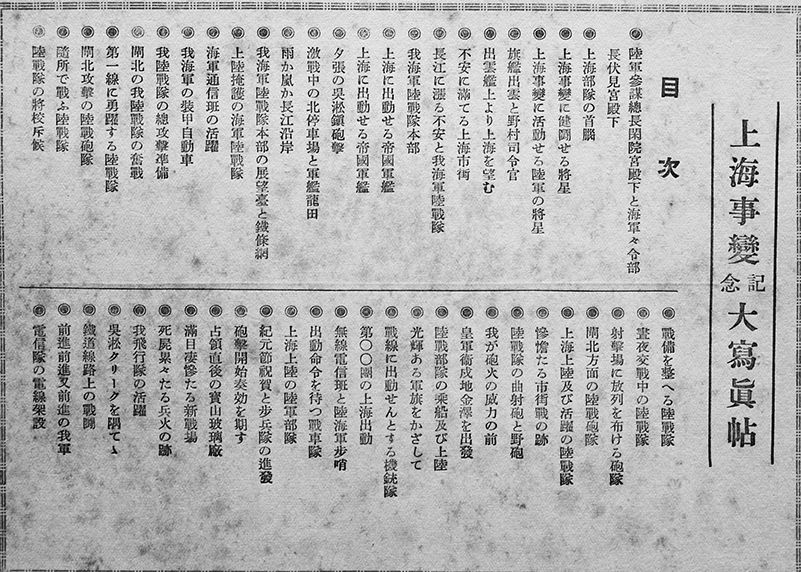 上海事變記念大寫眞帖
目次
◉陸軍參謀總長閑院宮殿下と海軍々令部
長伏見宮殿下
◉上海部隊の首腦
◉上海事變に健鬪せる將星
◉上海事變に活動せる陸軍の將星
◉旗艦出雲と野村司令官
◉出雲艦上より上海を望む
◉不安に滿てる上海市街
◉長江に漲る不安と我海軍陸戰隊
◉我海軍陸戰隊本部
◉上海に出動せる帝國軍艦
◉上海に出動せる帝國軍艦
◉夕張の吳淞鎭砲擊
◉激戰中の北停車場と軍艦龍田
◉雨か嵐か長江沿岸
◉我海軍陸戰隊本部の展望臺と鐵條網
◉上陸掩護の海軍陸戰隊
◉海軍通信班の活躍
◉我海軍の裝甲自動車
◉我陸戰隊の總攻擊準備
◉閘北の我陸戰隊の奮戰
◉第一線に勇躍する陸戰隊
◉閘北攻擊の陸戰砲隊
◉隨所で戰ふ陸戰隊
◉陸戰隊の將校斥候
◉戰備を整へる陸戰隊
◉晝夜交戰中の陸戰隊
◉射擊場に放列を布ける砲隊
◉閘北方面の陸戰砲隊
◉上海上陸及び活躍の陸戰隊
◉慘憺たる市街戰の跡
◉陸戰隊の曲射砲と野砲
◉我が砲火の威力の前
◉皇軍衞戍地金澤を出發
◉陸戰部隊の乘船及び上陸
◉光輝ある軍旗をかざして
◉戰線に出動せんとする機銃隊
◉第〇〇團の上海出動
◉無線電信班と陸海軍步哨
◉出動命令を待つ戰車隊
◉上海上陸の陸軍部隊
◉紀元節祝賀と步兵隊の進發
◉砲擊開始奏効を期す
◉占領直後の寶山玻璃廠
◉滿目凄慘たる新戰場
◉死屍累々たる兵火の跡
◉我飛行隊の活躍
◉吳淞クリークを隔てゝ
◉鐵道線路上の戰鬪
◉前進前進又前進の我軍
◉電信隊の電線架設